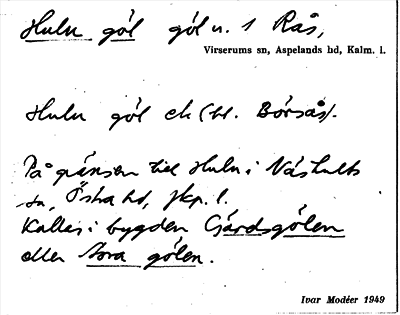 Hulu göl  göl n. 1 Rås,
Virserums sn, Aspelands hd, Kalm. l.
Hulu göl ek (bl. Börsås).
På gränsen till Hulu i Näshults
sn, Östra hd, Jkp. l.
Kallas i bygden Gårdsgölen
eller Stora gölen.
Ivar Modéer 1949